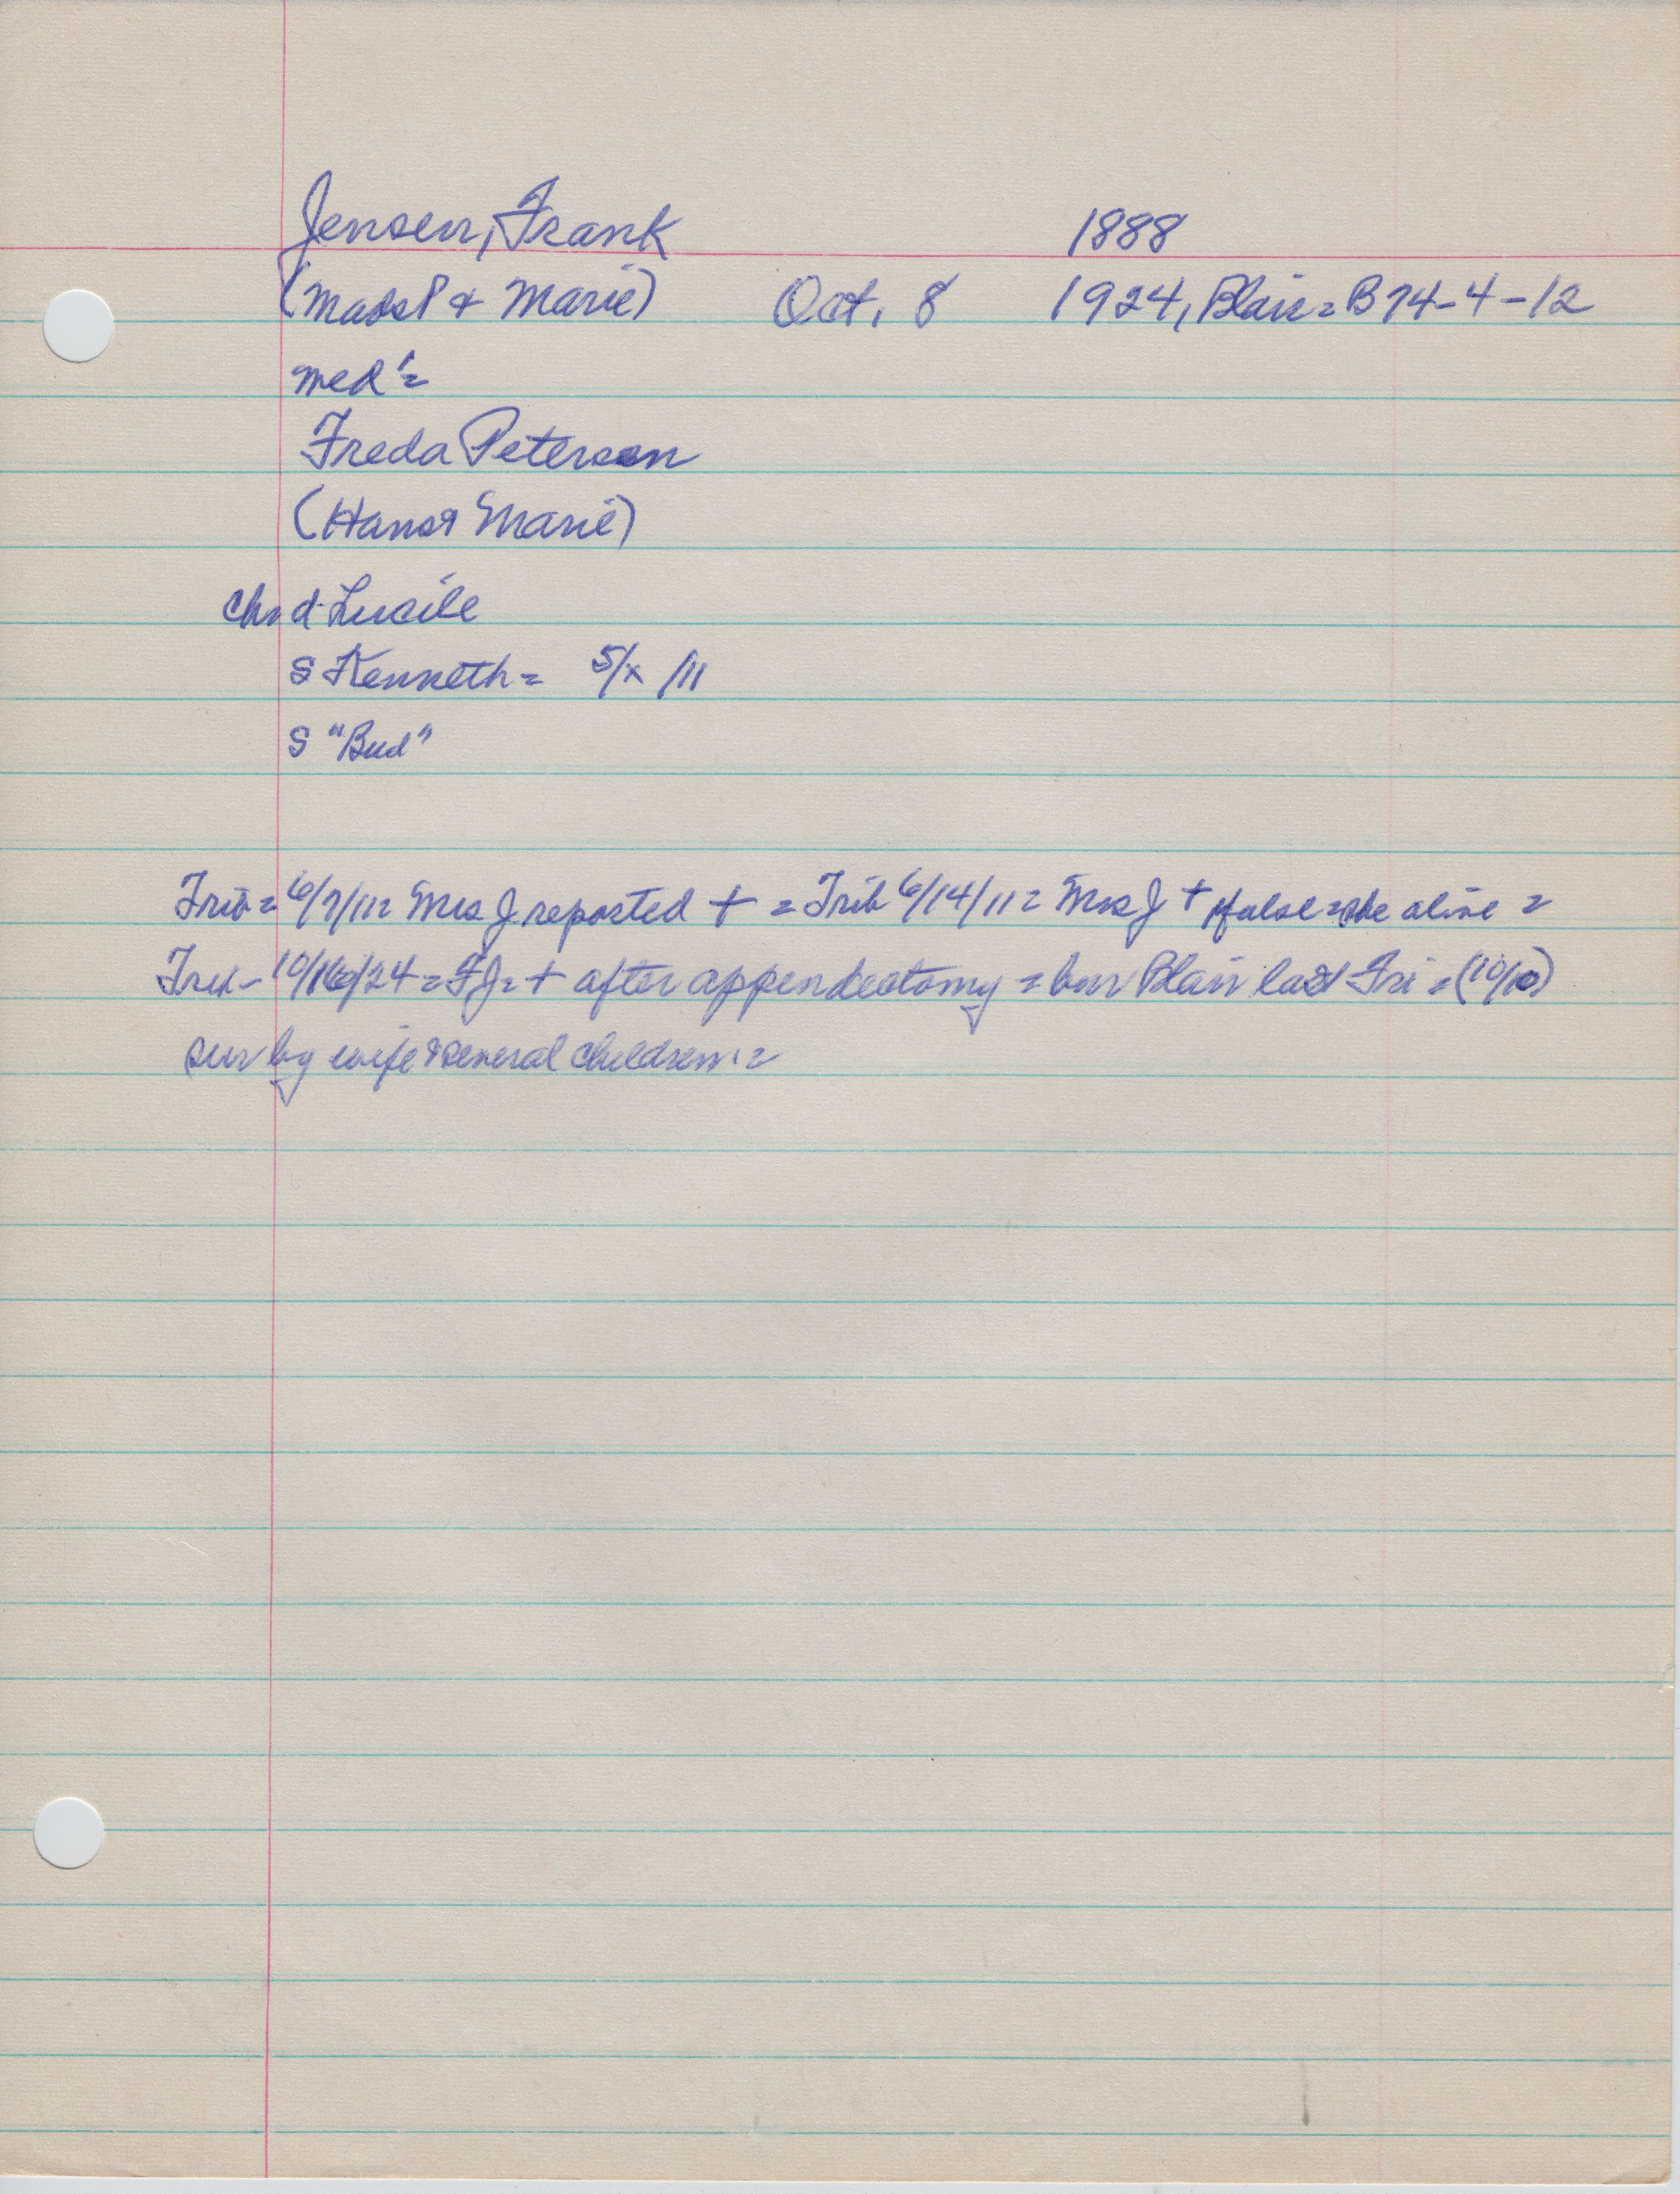 Jensen, Frank 1888
(Mads P & Marie) Oct. 8 1924, Blair = B 74-4-12
med' =
Freda Peterson
(Hans & Marie)
chn d. Lucile
s Kenneth = 5/x /11
s "Bud"
Trib = 6/7/11 = Mrs J reported + = Trib 6/14/11 = Mrs J + false = she alive =
10/16/24 = FJ = + after appendectomy = bur Blair last Fri = (10/10)
sur by wife & several children =